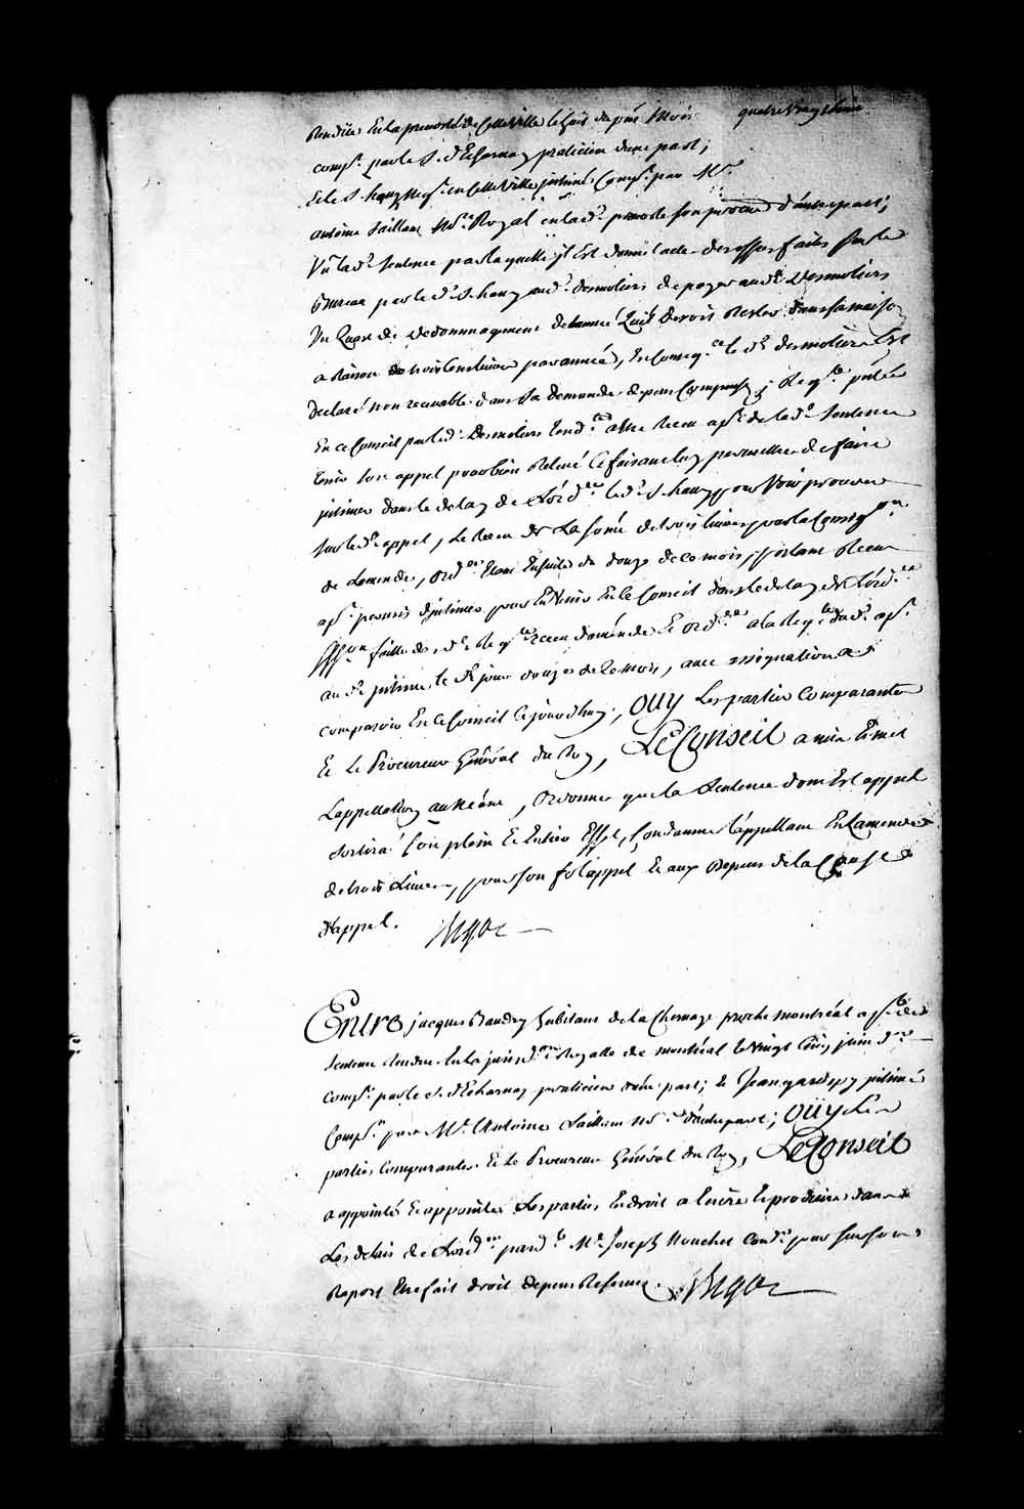 quatre Vingt
Rendüe En la prevosté de cette Ville le Six du pñt Mois
comp.t par le S. d'Echarnay praticien d'une part;
Et le S. hauy Neg.t en cette Ville jntimé, Comp.t par M.e
antoine Saillant No.re Royal en lad.e prevosté son procureur d'autre part;
Vu lad.e Sentence par laquelle jl Est donné acte des offres faites sur le
bureau par le d. S. hauy aud. desmoliers de payer aud.
de dedommagement de l'année quil devoit Rester dans sa maison
a Raison de trois Cens livres par année, En Conseq.ce le d. desmoliers Est
declaré non recevable dans sa demande depens Compensés; Req.te pntée
En ce Conseil par led. Desmoliers tend.te a Etre Recu ap.t de lad.e Sentence
tenir son appel pour bien Relevé Ce faisant luy permettre de faire
jntimer dans le delay de L'ord.ce led. S. hauy pour Voir proceder
sur led. appel, le Recu de La somme de trois livres pour la Consig.on
de Lamende, ord.ce Etant Ensuite du douze de ce mois, portant Recu
ap.t permis d'jntimer pour En Venir En le Conseil dans le delay de L'ord.ce
Sig.on faite de, d.e Req.te recu d'amende Et ord.ce a la Req.te dud. ap.t
au d. jntimé le d. jour douze de ce mois, avec assignation a
comparoir En ce Conseil Cejourdhuy; OUY Les parties Comparantes
Et Le Procureur Général du Roy, LE Conseil a mis Et met
Lappellation au Néant, Ordonne que la Sentence dont Est appel
Sortira Son plein Et Entier Effet, Condamne l'appellant En Lamende
de trois Livres, pour son fol appel Et aux Depens de la Cause
d'appel. Bigot

Entre jacques Baudry habitant de la Chenaye proche montréal ap.t de
Sentence Rendue En la jurisd.on Royalle de montréal le Vingt Cinq juin d.er
Comp.t par le S. d'Echarnay praticien d'une part; Et Jean jntimé
Comp.t par M.e Antoine Saillant No.re d'autre part; OÜY Les
parties Comparantes Et Le Procureur Général du Roy, LE Conseil
a appointé Et appointe Les parties En droit a Ecrire Et produire dans
Les delais de L'ord.ce pard.t M.e Joseph Nouchet Con.er pour sur son
Raport Etre fait droit depens Reservés. Bigot